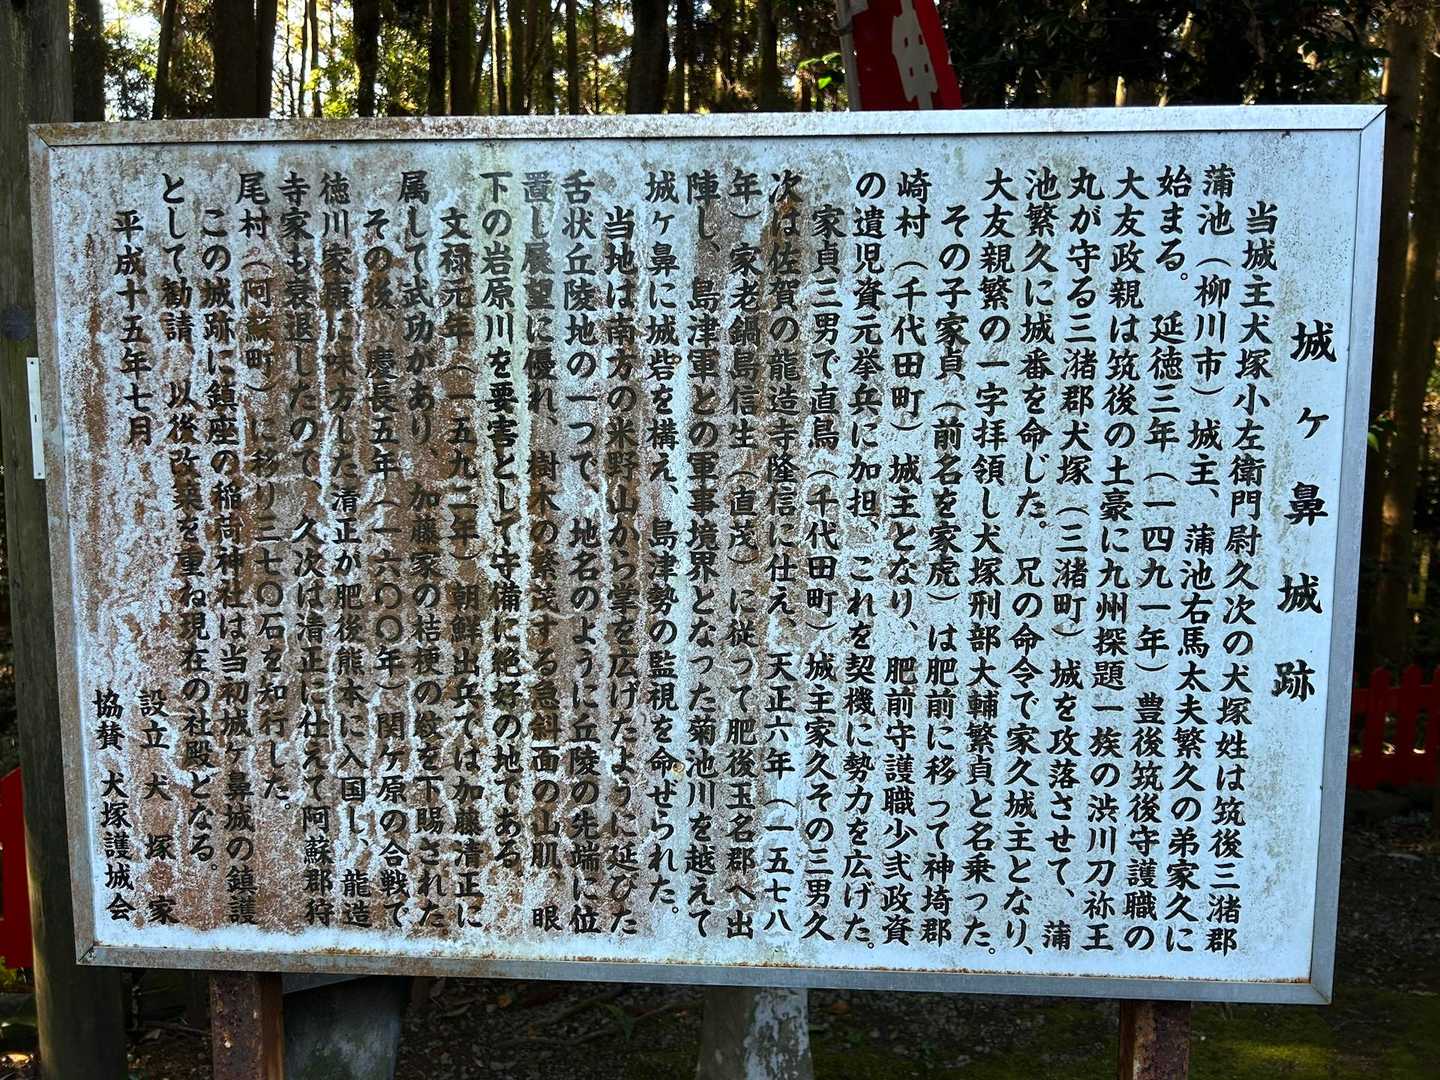 城ヶ鼻城跡
当城主犬塚小左衛門尉久次の犬塚姓は筑後三潴郡
蒲池（柳川市）城主、蒲池右馬太夫繁久の弟家久に
始まる。延徳三年（一四九一年）豊後筑後守護職の
大友政親は筑後の土豪に九州探題一族の渋川刀祢王
丸が守る三潴郡犬塚（三潴町）城を攻落させて、蒲
池繁久に城番を命じた。兄の命令で家久城主となり、
大友親繁の一字拝領し犬塚刑部大輔繁貞と名乗った。
その子家貞（前名を家虎）は肥前に移って神埼郡
崎村（千代田町）城主となり、肥前守護職少弐政資
の遺児資元挙兵に加担、これを契機に勢力を広げた。
家貞三男で直鳥（千代田町）城主家久その三男久
次は佐賀の龍造寺隆信に仕え、天正六年（一五七八
年）家老鍋島信生（直茂）に従って肥後玉名郡へ出
陣し、島津軍との軍事境界となった菊池川を越えて
城ヶ鼻に城砦を構え、島津勢の監視を命ぜられた。
当地は南方の米野山から掌を広げたように延びた
舌状丘陵地の一つで、地名のように丘陵の先端に位
置し展望に優れ、樹木の繁茂する急斜面の山肌、眼
下の岩原川を要害として守備に絶好の地である。
文禄元年（一五九二年）朝鮮出兵では加藤清正に
属して武功があり、加藤家の桔梗の紋を下賜された
その後、慶長五年（一六〇〇年）関ヶ原の合戦で
徳川家康に味方した清正が肥後熊本に入国し、龍造
寺家も衰退したので、久次は清正に仕えて阿蘇郡狩
尾村（阿蘇町）に移り三七〇石を知行した。
この城跡に鎮座の稲荷神社は当初城ヶ鼻城の鎮護
として勧請、以後改築を重ね現在の社殿となる。
平成十五年七月
設立 犬塚家
協賛 犬塚護城会